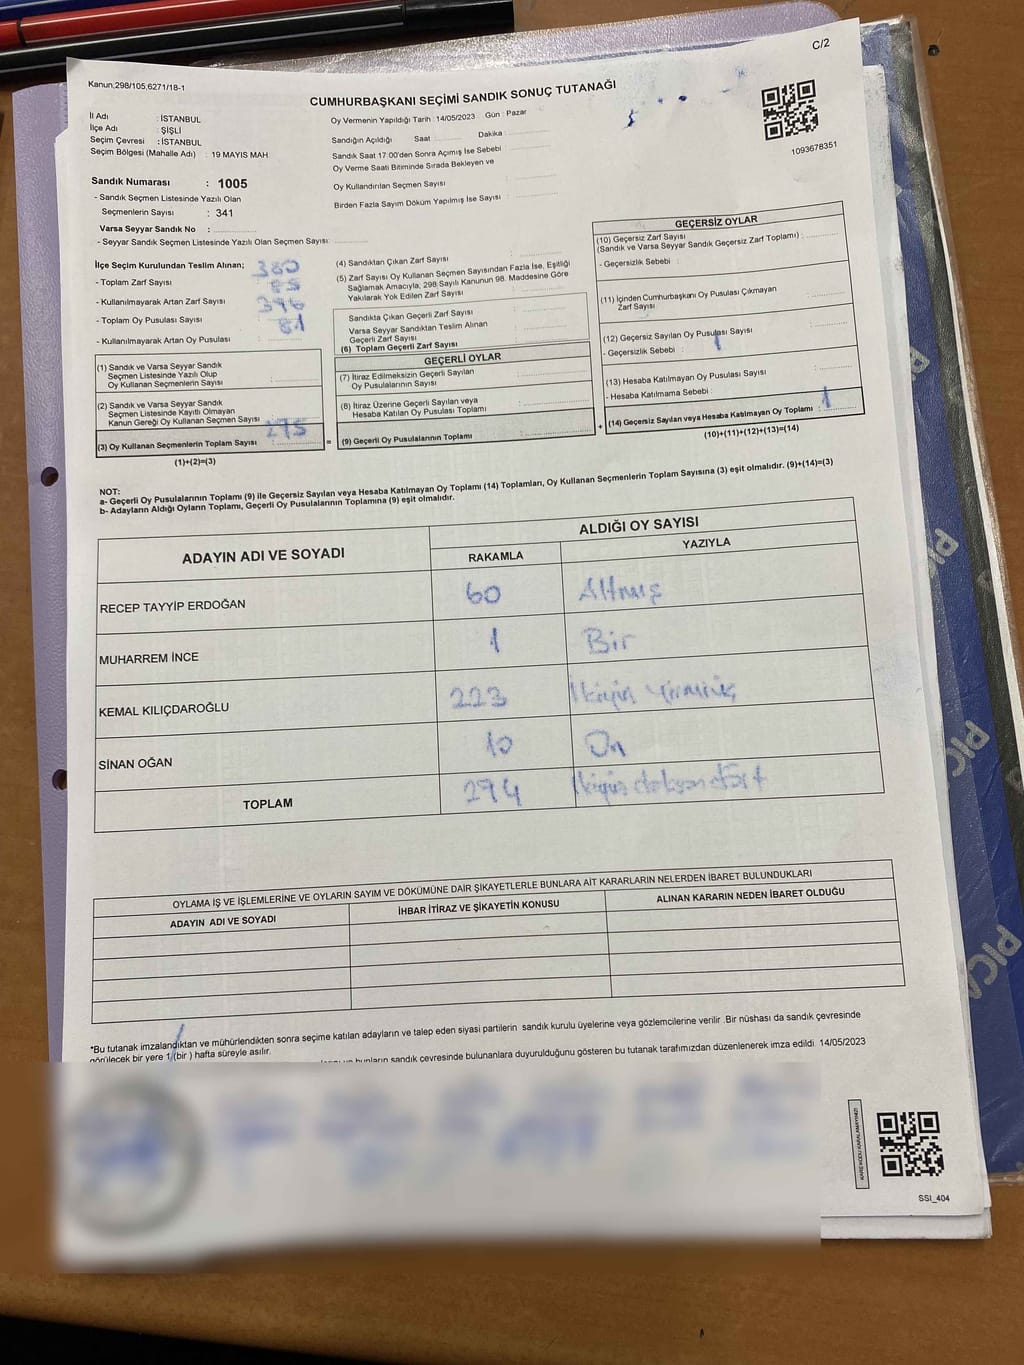 C/2
Kanun,298/105,6271/18-1
CUMHURBAŞKANI SEÇİMİ SANDIK SONUÇ TUTANAĞI
İl Adı : İSTANBUL
İlçe Adı : ŞİŞLİ
Seçim Çevresi : İSTANBUL
Seçim Bölgesi (Mahalle Adı) : 19 MAYIS MAH
Sandık Numarası : 1005
- Sandık Seçmen Listesinde Yazılı Olan
Seçmenlerin Sayısı : 341
Varsa Seyyar Sandık No :
- Seyyar Sandık Seçmen Listesinde Yazılı Olan Seçmen Sayısı:
Oy Vermenin Yapıldığı Tarih : 14/05/2023 Gün : Pazar
Sandığın Açıldığı Saat Dakika :
Sandık Saat 17:00'den Sonra Açımış İse Sebebi :
Oy Verme Saati Bitiminde Sırada Bekleyen ve
Oy Kullandırılan Seçmen Sayısı :
Birden Fazla Sayım Döküm Yapılmış İse Sayısı :
1093678351
İlçe Seçim Kurulundan Teslim Alınan; 380
- Toplam Zarf Sayısı
- Kullanılmayarak Artan Zarf Sayısı
- Toplam Oy Pusulası Sayısı
- Kullanılmayarak Artan Oy Pusulası : 81
(1) Sandık ve Varsa Seyyar Sandık
Seçmen Listesinde Yazılı Olup
Oy Kullanan Seçmenlerin Sayısı :
(2) Sandık ve Varsa Seyyar Sandık
Seçmen Listesinde Kayıtlı Olmayan
Kanun Gereği Oy Kullanan Seçmen Sayısı :
(3) Oy Kullanan Seçmenlerin Toplam Sayısı : 295
(1)+(2)=(3)
(4) Sandıktan Çıkan Zarf Sayısı :
(5) Zarf Sayısı Oy Kullanan Seçmen Sayısından Fazla İse, Eşitliği
Sağlamak Amacıyla, 298 Sayılı Kanunun 98. Maddesine Göre
Yakılarak Yok Edilen Zarf Sayısı :
Sandıkta Çıkan Geçerli Zarf Sayısı :
Varsa Seyyar Sandıktan Teslim Alınan
Geçerli Zarf Sayısı :
(6) Toplam Geçerli Zarf Sayısı :
GEÇERLİ OYLAR
(7) İtiraz Edilmeksizin Geçerli Sayılan
Oy Pusulalarının Sayısı :
(8) İtiraz Üzerine Geçerli Sayılan veya
Hesaba Katılan Oy Pusulası Toplamı :
= (9) Geçerli Oy Pusulalarının Toplamı :
GEÇERSİZ OYLAR
(10) Geçersiz Zarf Sayısı
(Sandık ve Varsa Seyyar Sandık Geçersiz Zarf Toplamı) :
- Geçersizlik Sebebi :
(11) İçinden Cumhurbaşkanı Oy Pusulası Çıkmayan
Zarf Sayısı :
(12) Geçersiz Sayılan Oy Pusulası Sayısı :
- Geçersizlik Sebebi : 1
(13) Hesaba Katılmayan Oy Pusulası Sayısı :
- Hesaba Katılmama Sebebi :
+ (14) Geçersiz Sayılan veya Hesaba Katılmayan Oy Toplamı : 1
(10)+(11)+(12)+(13)=(14)
NOT:
a- Geçerli Oy Pusulalarının Toplamı (9) ile Geçersiz Sayılan veya Hesaba Katılmayan Oy Toplamı (14) Toplamları, Oy Kullanan Seçmenlerin Toplam Sayısına (3) eşit olmalıdır. (9)+(14)=(3)
b- Adayların Aldığı Oyların Toplamı, Geçerli Oy Pusulalarının Toplamına (9) eşit olmalıdır.
ADAYIN ADI VE SOYADI
ALDIĞI OY SAYISI
RAKAMLA YAZIYLA
RECEP TAYYİP ERDOĞAN 60 Altmış
MUHARREM İNCE 1 Bir
KEMAL KILIÇDAROĞLU 223 İkiyüz yirmiüç
SİNAN OĞAN 10 On
TOPLAM 294 İkiyüz doksan dört
OYLAMA İŞ VE İŞLEMLERİNE VE OYLARIN SAYIM VE DÖKÜMÜNE DAİR ŞİKAYETLERLE BUNLARA AİT KARARLARIN NELERDEN İBARET BULUNDUKLARI
ADAYIN ADI VE SOYADI İHBAR İTİRAZ VE ŞİKAYETİN KONUSU ALINAN KARARIN NEDEN İBARET OLDUĞU
*Bu tutanak imzalandıktan ve mühürlendikten sonra seçime katılan adayların ve talep eden siyasi partilerin sandık kurulu üyelerine veya gözlemcilerine verilir .Bir nüshası da sandık çevresinde
görülecek bir yere 1 (bir ) hafta süreyle asılır.
bunların sandık çevresinde bulunanlara duyurulduğunu gösteren bu tutanak tarafımızdan düzenlenerek imza edildi. 14/05/2023
KARE KODU KARALAMAYINIZ!
SSI_404
PICA
PICA
PICA